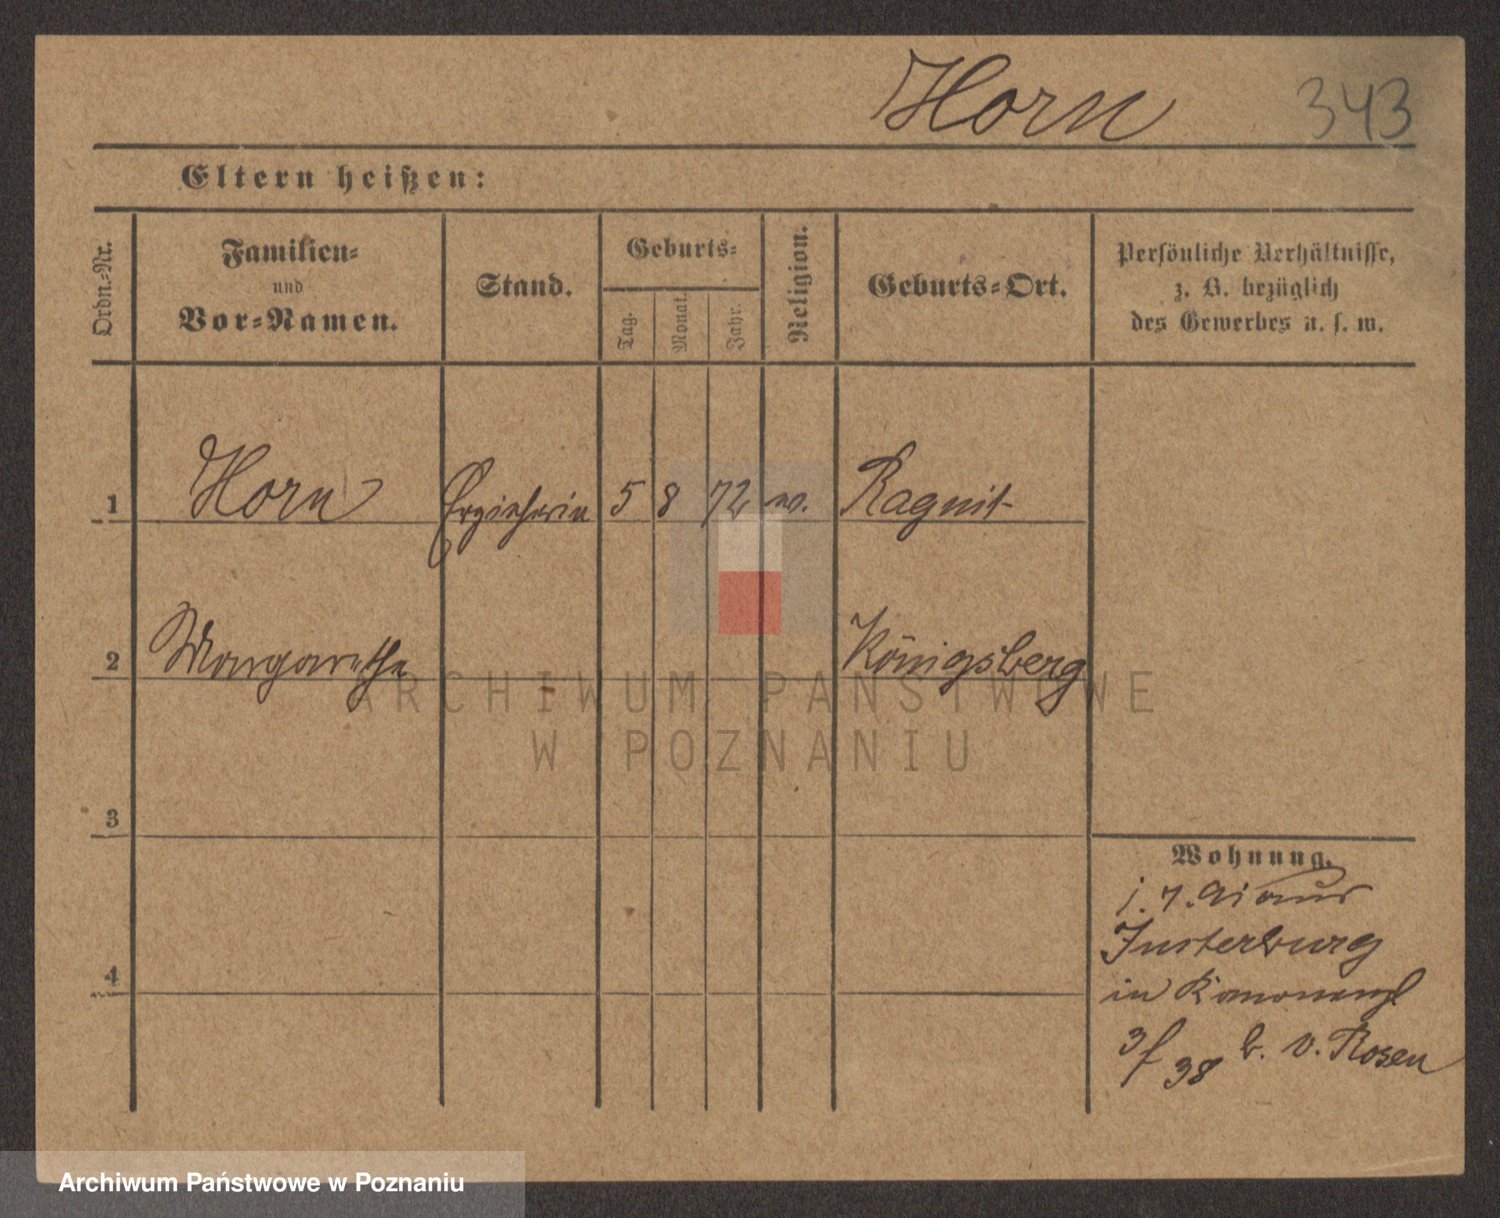 Horn 343
Eltern heißen:
Ordn.-Nr.
Familien-
und
Vor-Namen.
Stand.
Geburts-
Tag.
Monat.
Jahr.
Religion.
Geburts-Ort.
Persönliche Verhältnisse,
z. B. bezüglich
des Gewerbes u. s. w.
1 Horn Erzieherin 5 8 72 ev. Ragnit
2 Margarethe Königsberg
3
4
Wohnung.
aus
Insterburg
in
3/38 b. v. Rosen
ARCHIWUM PAŃSTWOWE
W POZNANIU
Archiwum Państwowe w Poznaniu